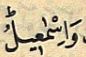 وَاِسْمٰعِيْلُ